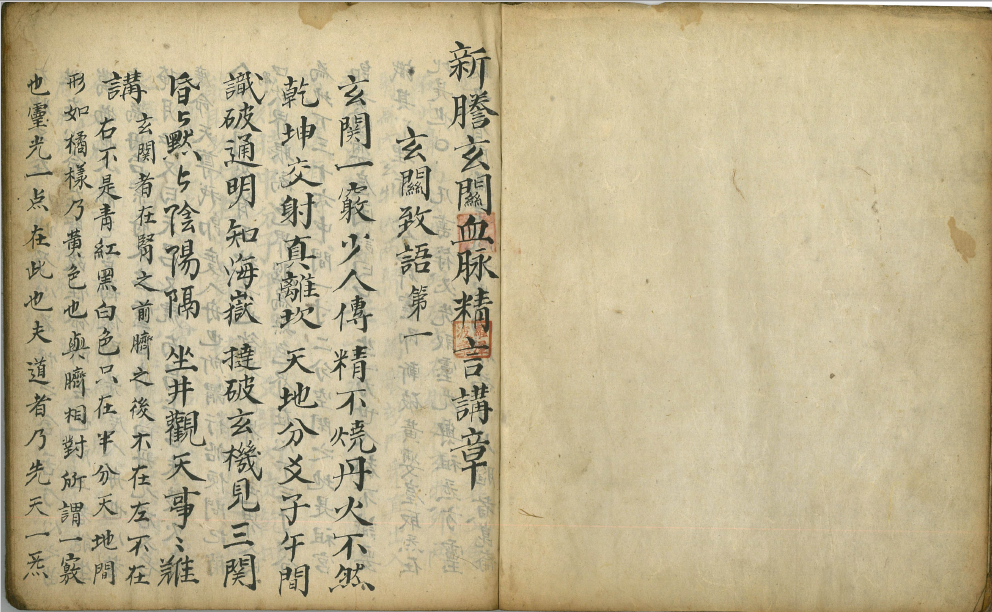 新謄玄關血脉精言講章
玄關致語 第一
玄関一竅少人傳 精不燒丹火不然
乾坤交射真離坎 天地分爻子午間
識破通明知海嶽 撻破玄機見三関
昏ㄣ黙ㄣ陰陽隔 坐井觀天事〻難
講 玄関者在腎之前臍之後不在左不在
右不是青紅黑白色只在半分天地間
形如橘樣乃黃色也與臍相對所謂一竅
也靈光一点在此也夫道者乃先天一炁